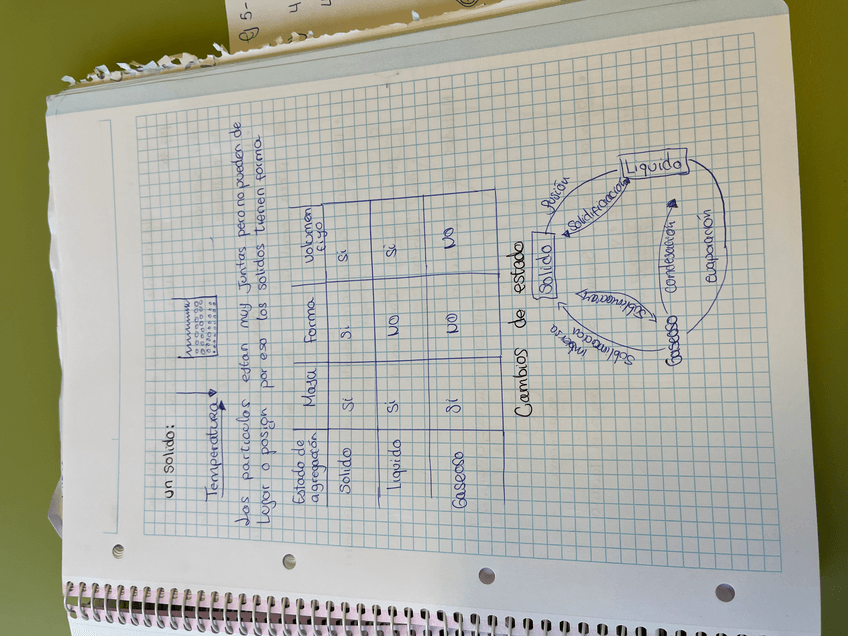 un solido:
Temperatura
Las particulas estan muy juntas pero no pueden de
Lugar o posign por eso los solidos tienen forma
Estado de agregación Masa Forma Volumen fiyo
Solido Si Si Si
Liquido Si NO Si
Gaseoso Si NO NO
Cambios de estado
Solido
fusión
Solidificación
Liquido
Sublimacion
Sublimacion
imbersa
Gaseoso
Condesación
evaporación